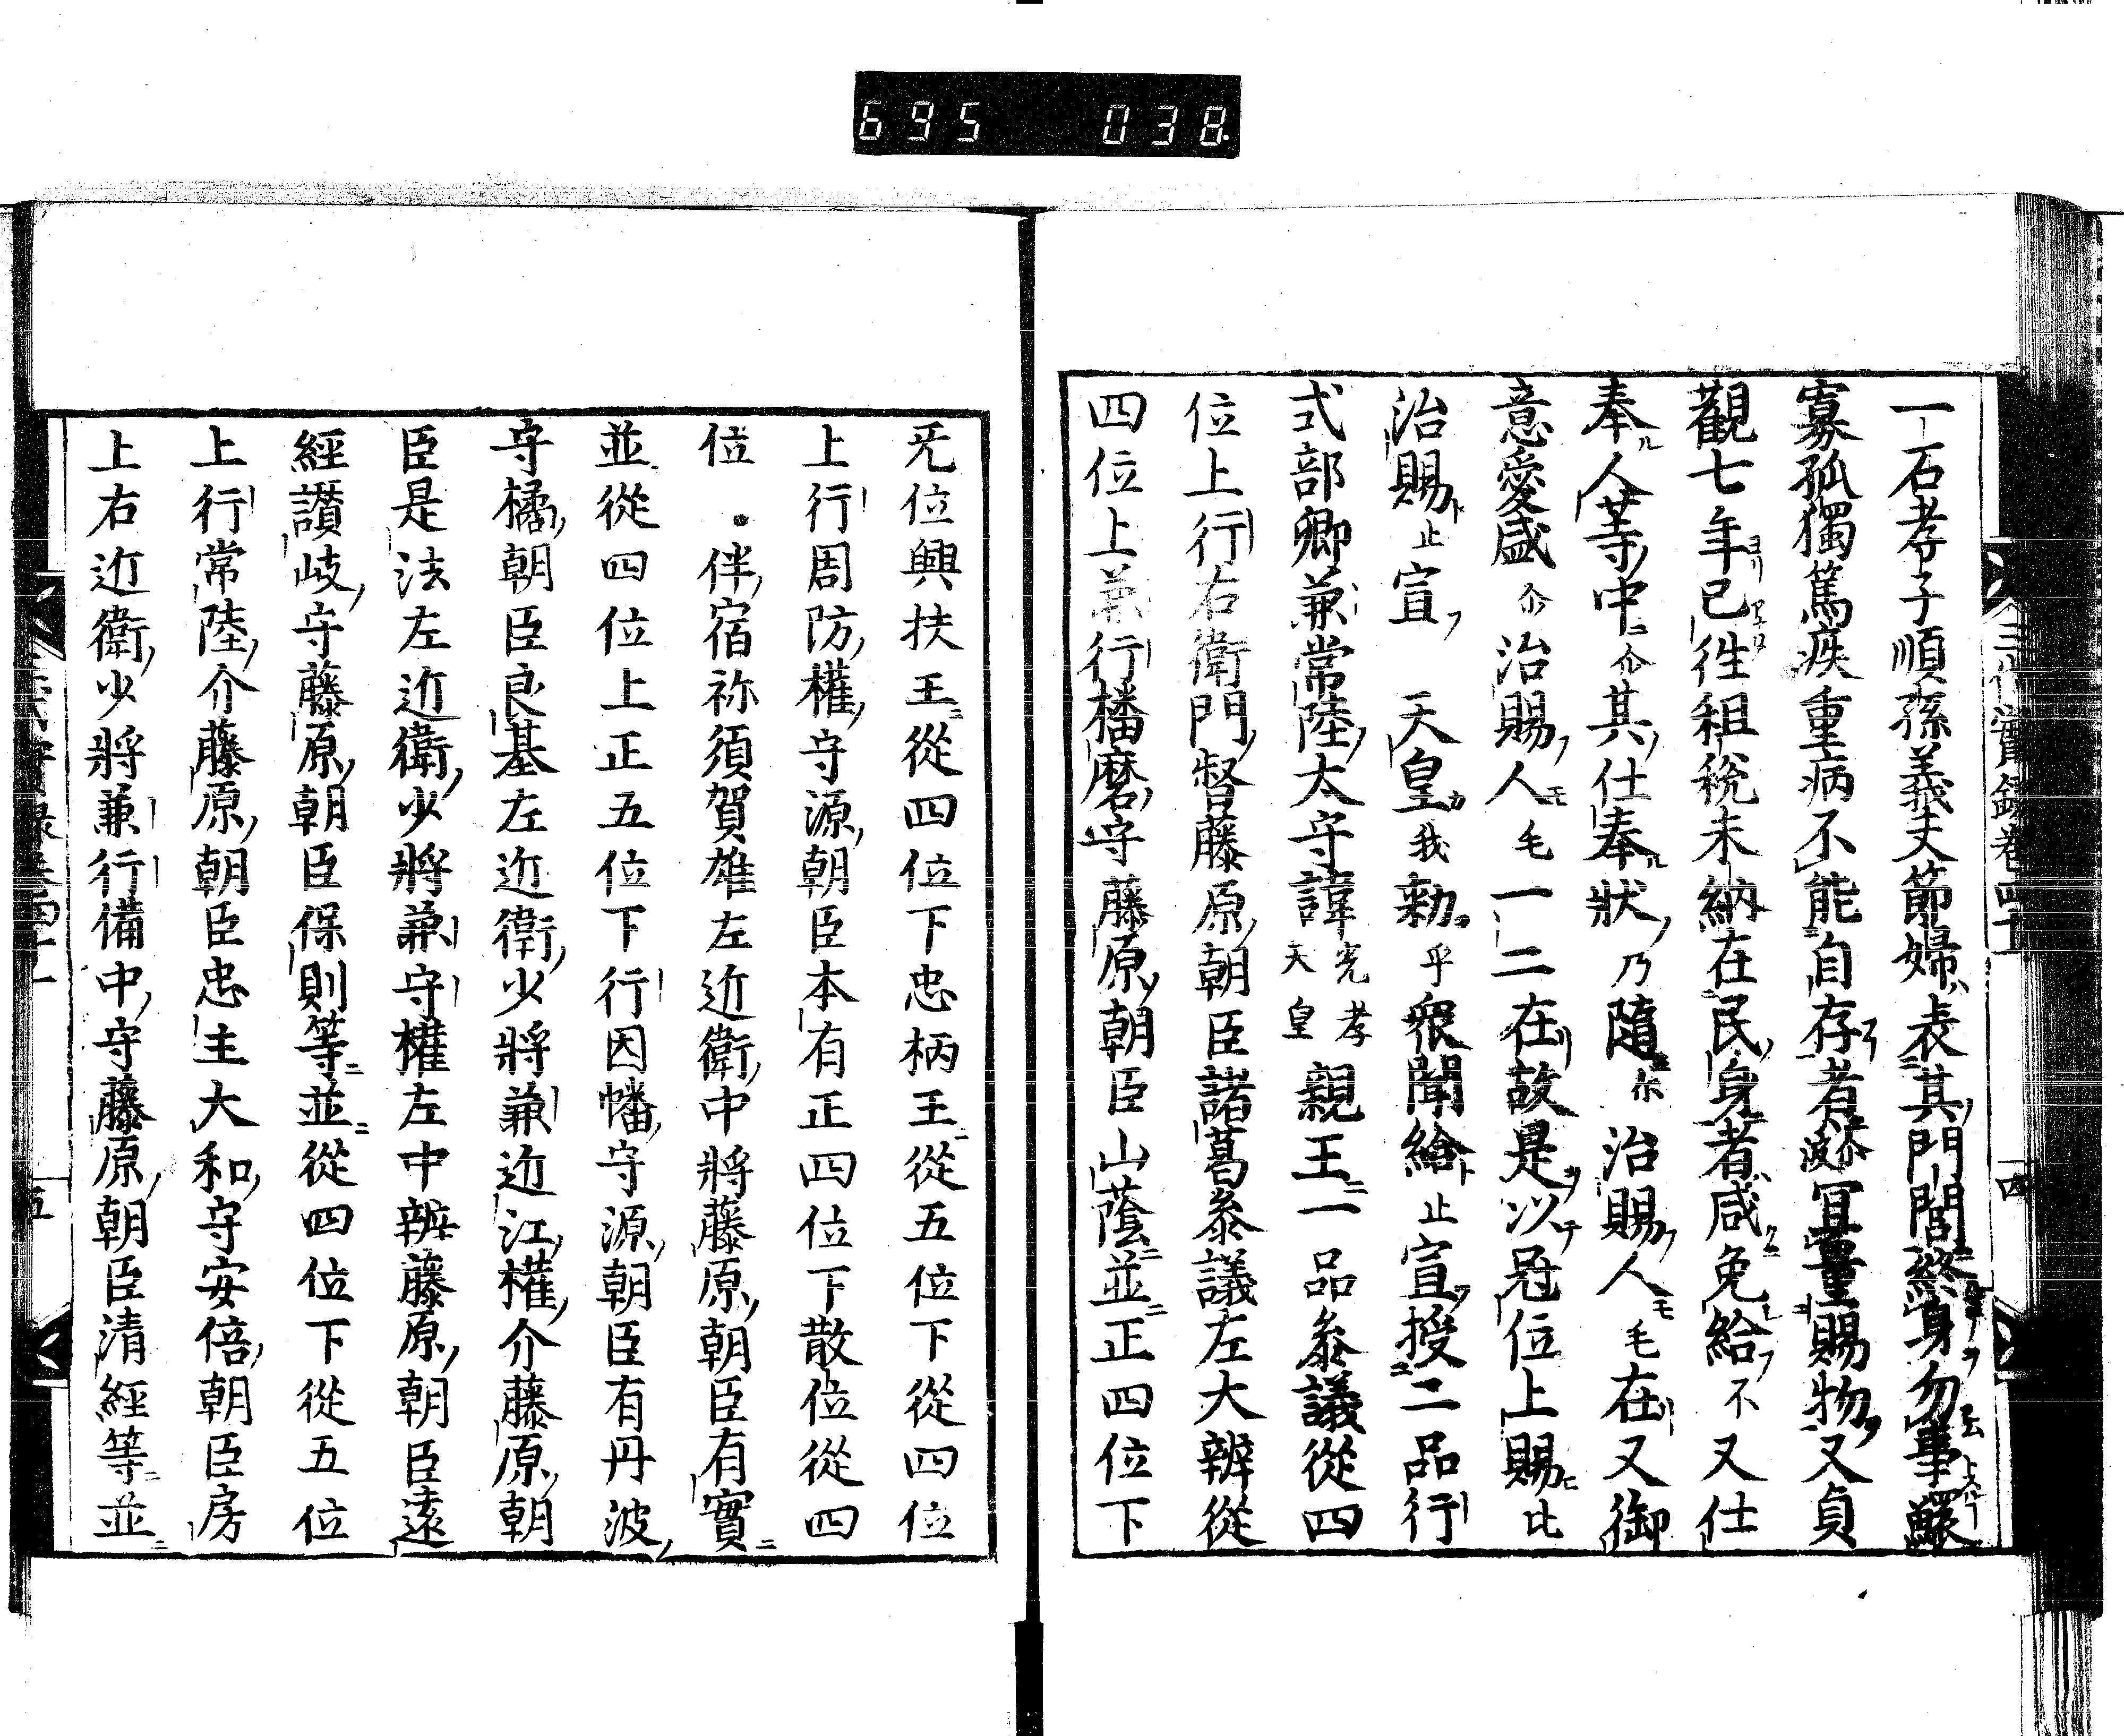 695 038
三代實錄卷四十一 四
一石孝子順孫義夫節婦表其門閭終身勿事鰥
寡孤獨篤疾重病不能自存者尒波冝量賜物又貞
觀七年已徃租稅未納在民身者咸免給不又仕
奉人等中尒其仕奉狀乃隨尓治賜人毛在又御
意愛盛尒治賜人毛一二在故是以冠位上賜比
治賜止宣 天皇我勑乎衆聞給止宣授二品行
式部卿兼常陸太守諱光孝天皇親王一品叅議從四
位上行右衛門督藤原朝臣諸葛叅議左大辨從
四位上兼行播磨守藤原朝臣山蔭並正四位下
旡位興扶王從四位下忠柄王從五位下從四位
上行周防權守源朝臣本有正四位下散位從四
位・伴宿祢須賀雄左近衛中將藤原朝臣有實
並從四位上正五位下行因幡守源朝臣有丹波
守橘朝臣良基左近衛少將兼近江權介藤原朝
臣是法左近衛少將兼守權左中辨藤原朝臣遠
經讃岐守藤原朝臣保則等並從四位下從五位
上行常陸介藤原朝臣忠主大和守安倍朝臣房
上右近衛少將兼行備中守藤原朝臣清經等並
五